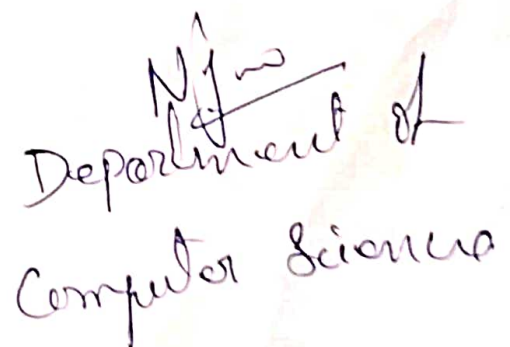 Department of
Computer Science